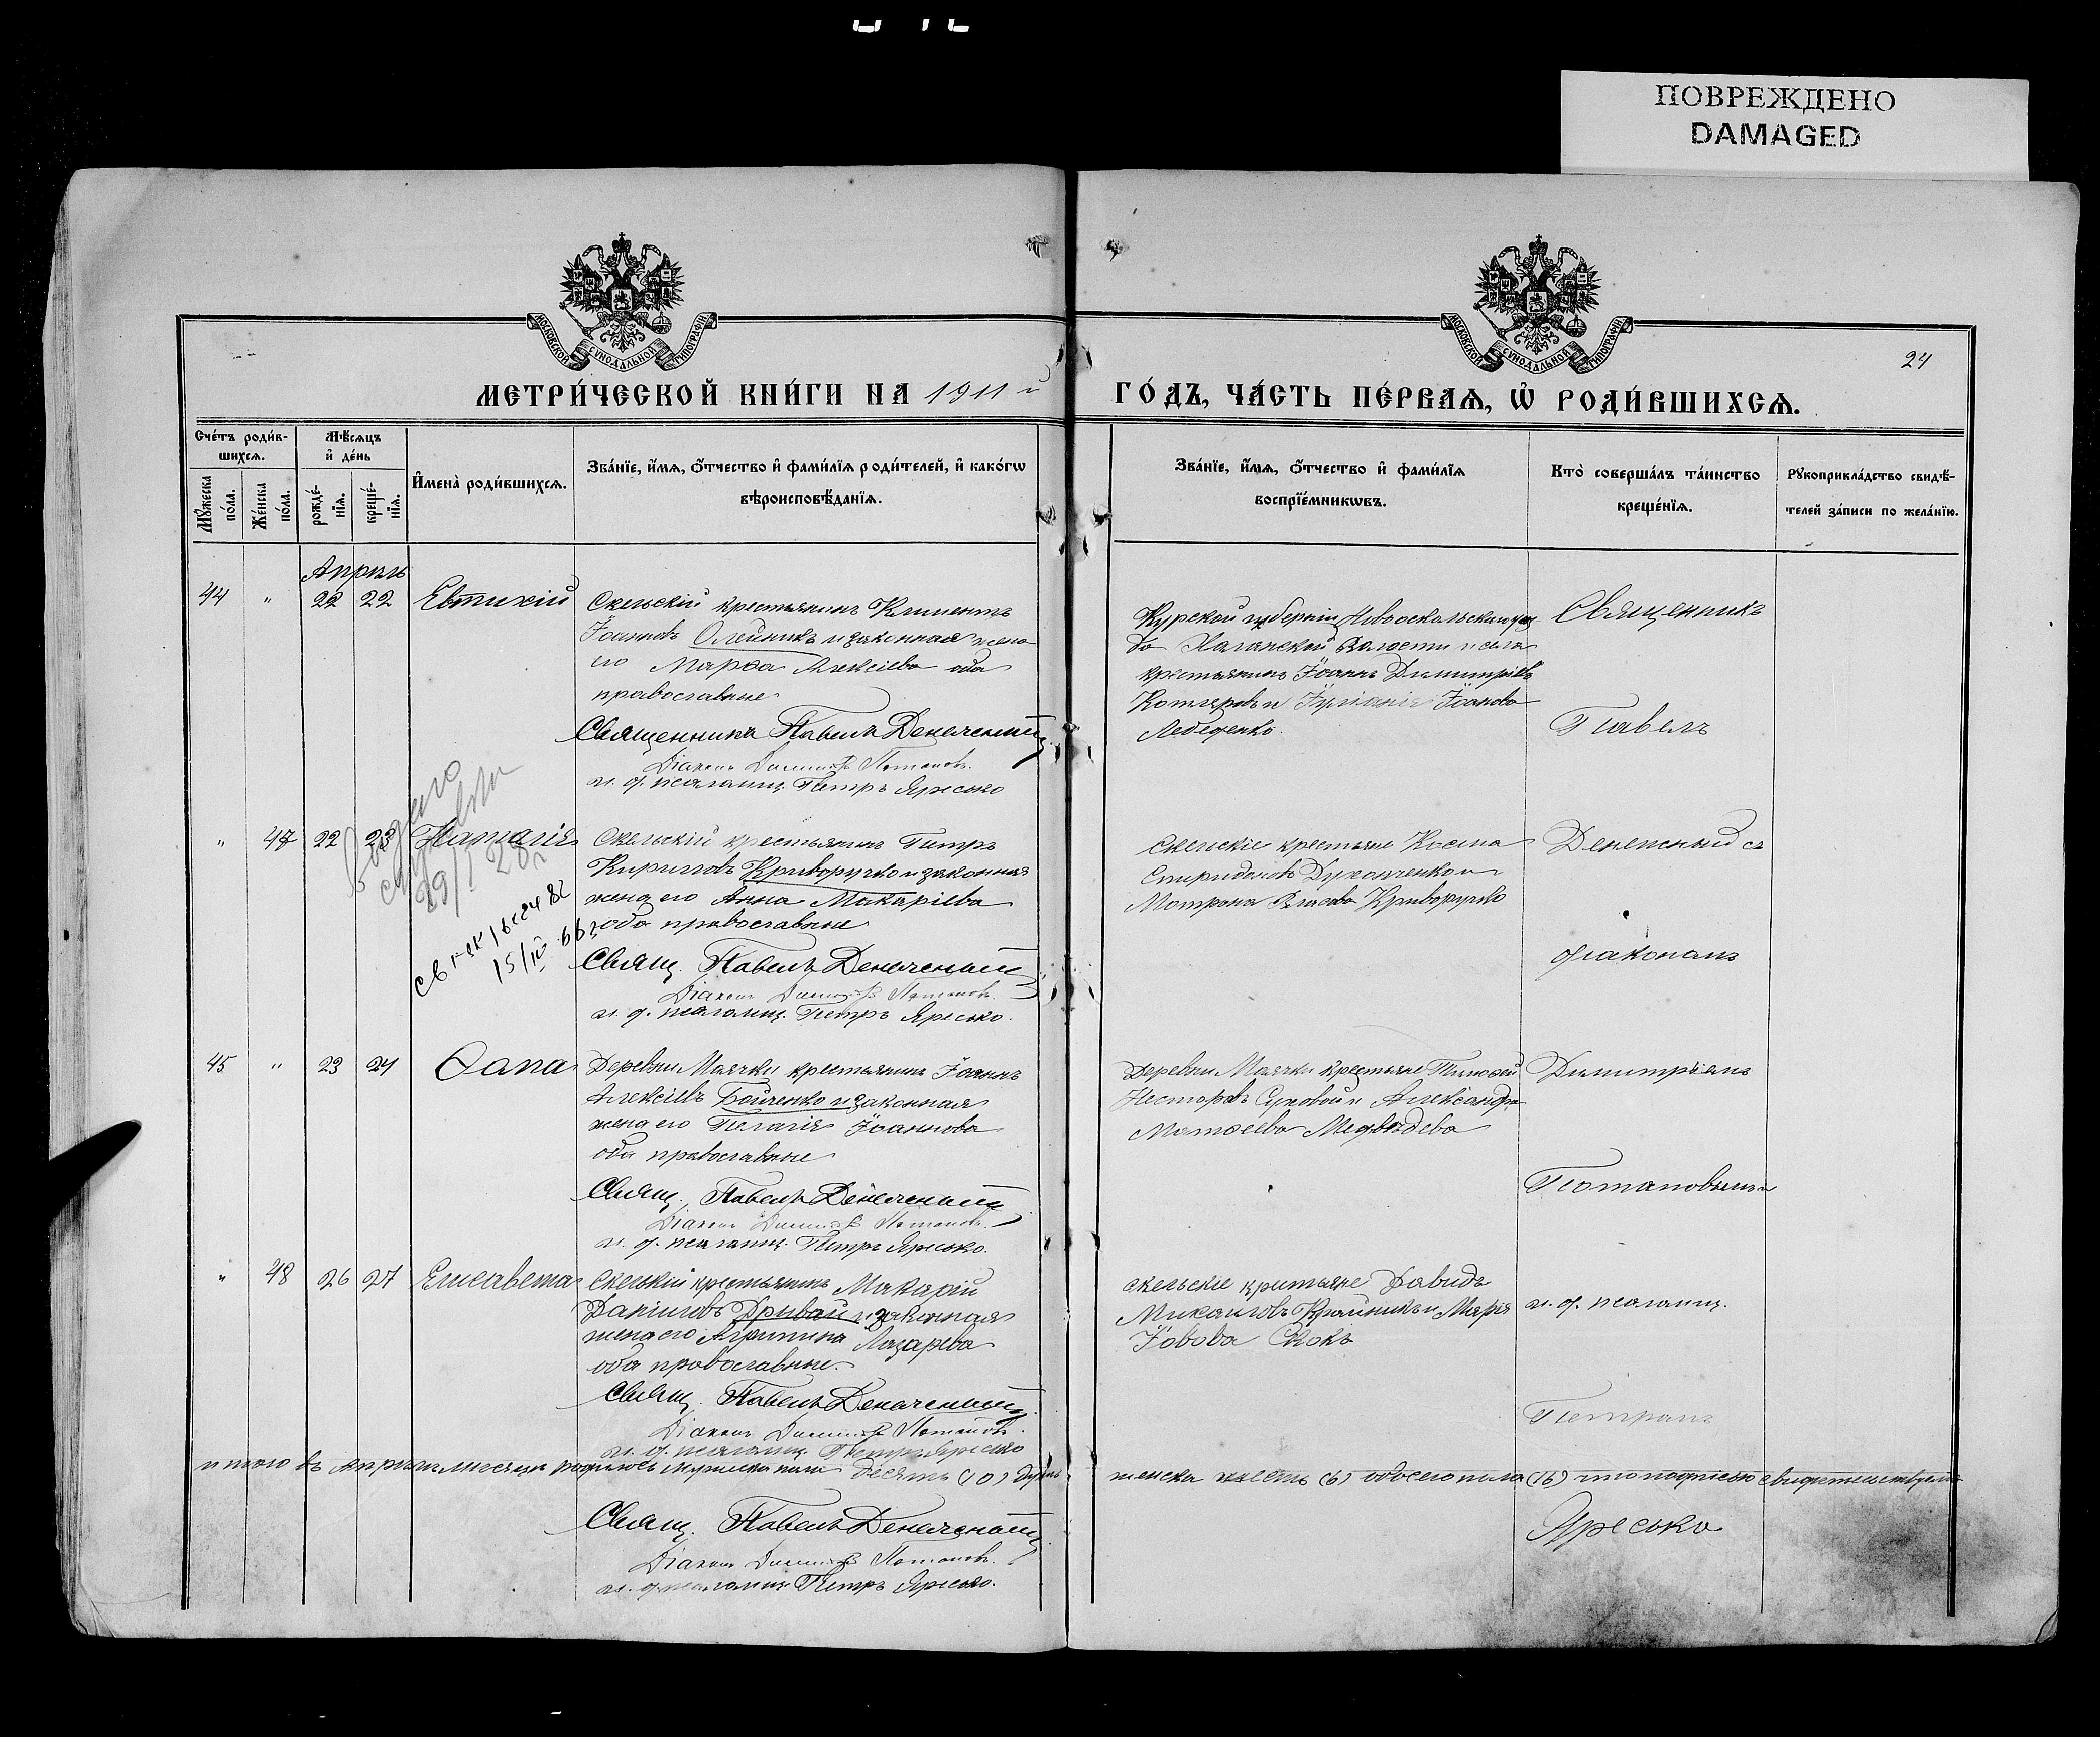 ПОВРЕЖДЕНО
DAMAGED
МОСКОВСКОЙ СѴНОДАЛЬНОЙ ТИПОГРАФІИ
МОСКОВСКОЙ СѴНОДАЛЬНОЙ ТИПОГРАФІИ
24
МЕТРИ́ЧЕСКОЙ КНИ́ГИ НА 1911 й ГО́ДЪ, ЧА́СТЬ ПЕ́РВАѦ, Ѡ҆ РОДИ́ВШИХСѦ.
Сче́тъ роди́в-
шихсѧ.
Мꙋ́жеска по́ла.
Же́нска по́ла.
Мѣ́сѧцъ
и҆ де́нь
рожде́-
нїѧ.
креще́-
нїѧ.
И҆мена̀ роди́вшихсѧ.
Зва́нїе, и҆́мѧ, ѻ҆́тчество и҆ фами́лїѧ роди́телей, и҆ како́гѡ
вѣроисповѣ́данїѧ.
Зва́нїе, и҆́мѧ, ѻ҆́тчество и҆ фами́лїѧ
воспрїе́мникѡвъ.
Кто̀ соверша́лъ та́инство
креще́нїѧ.
Рꙋкоприкла́дство свидѣ́-
телей за́писи по жела́нїю.
Апрель
44 " 22 22 Евтихій
Скельскій крестьянинъ Климентъ
Іоанновъ Олейникъ и законная жена
его Марѳа Алексіева оба
православные
Священникъ Павелъ Денеженный
Діаконъ Димитрій Потаповъ.
и. д. псаломщ. Петръ Яресько
Курской губерніи Новооскольскаго уез
да волости и села
крестьянинъ Іоаннъ Димитріевъ
и Іуліанія Іоанова
Лебеденко.
Священникъ
Павелъ
" 47 22 23 Наталія
Выдано
29/I 28 г
15/IV 66 г
Скельскій крестьянинъ Петръ
Кириловъ Криворучко и законная
жена его Анна Макаріева
оба православные
Свящ. Павелъ Денеженный
Діаконъ Димитрій Потаповъ.
и. д. псаломщ. Петръ Яресько.
Скельскіе крестьяне Косма
Спиридоновъ и
Матрона Власова Криворучко
Денежный съ
діакономъ
45 " 23 24 Ѳома
Деревни Маячки крестьянинъ Іоаннъ
Алексіевъ Бойченко и законная
жена его Пелагія Іоаннова
оба православные
Свящ. Павелъ Денеженный
Діаконъ Димитрій Потаповъ.
и. д. псаломщ. Петръ Яресько.
Деревни Маячки крестьяне Тимоѳей
Несторовъ Суховой и Александра
Матѳеева Медвѣдева
Димитріемъ
Потаповымъ
" 48 26 27 Елисавета
Скельскій крестьянинъ Макарій
Даніиловъ Дривай и законная
жена его Агрипина Лазарева
оба православные.
Свящ. Павелъ Денеженный
Діаконъ Димитрій Потаповъ.
и. д. псаломщ. Петръ Яресько
скельскіе критьяне Давидъ
Михаиловъ и Марія
Іовова
и. д. псаломщ.
Петромъ
Яресько
итого въ Апреле месяце родилось мужеска пола десять (10) душъ женска шесть (6) обоего пола (16) что подписью свидетельствуемъ
Свящ. Павелъ Денеженный
Діаконъ Димитрій Потаповъ.
и. д. псаломщ. Петръ Яресько.